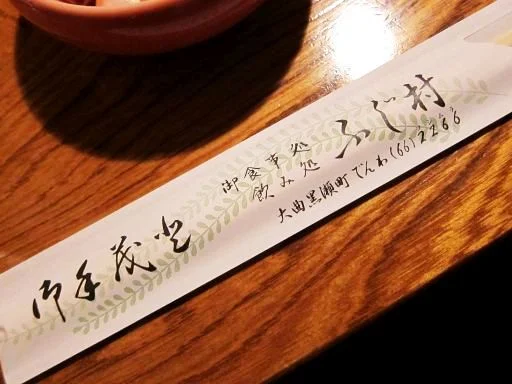 御手茂登
御食事処
飲み処
ふじ村
大曲黒瀬町でんわ(66)2266